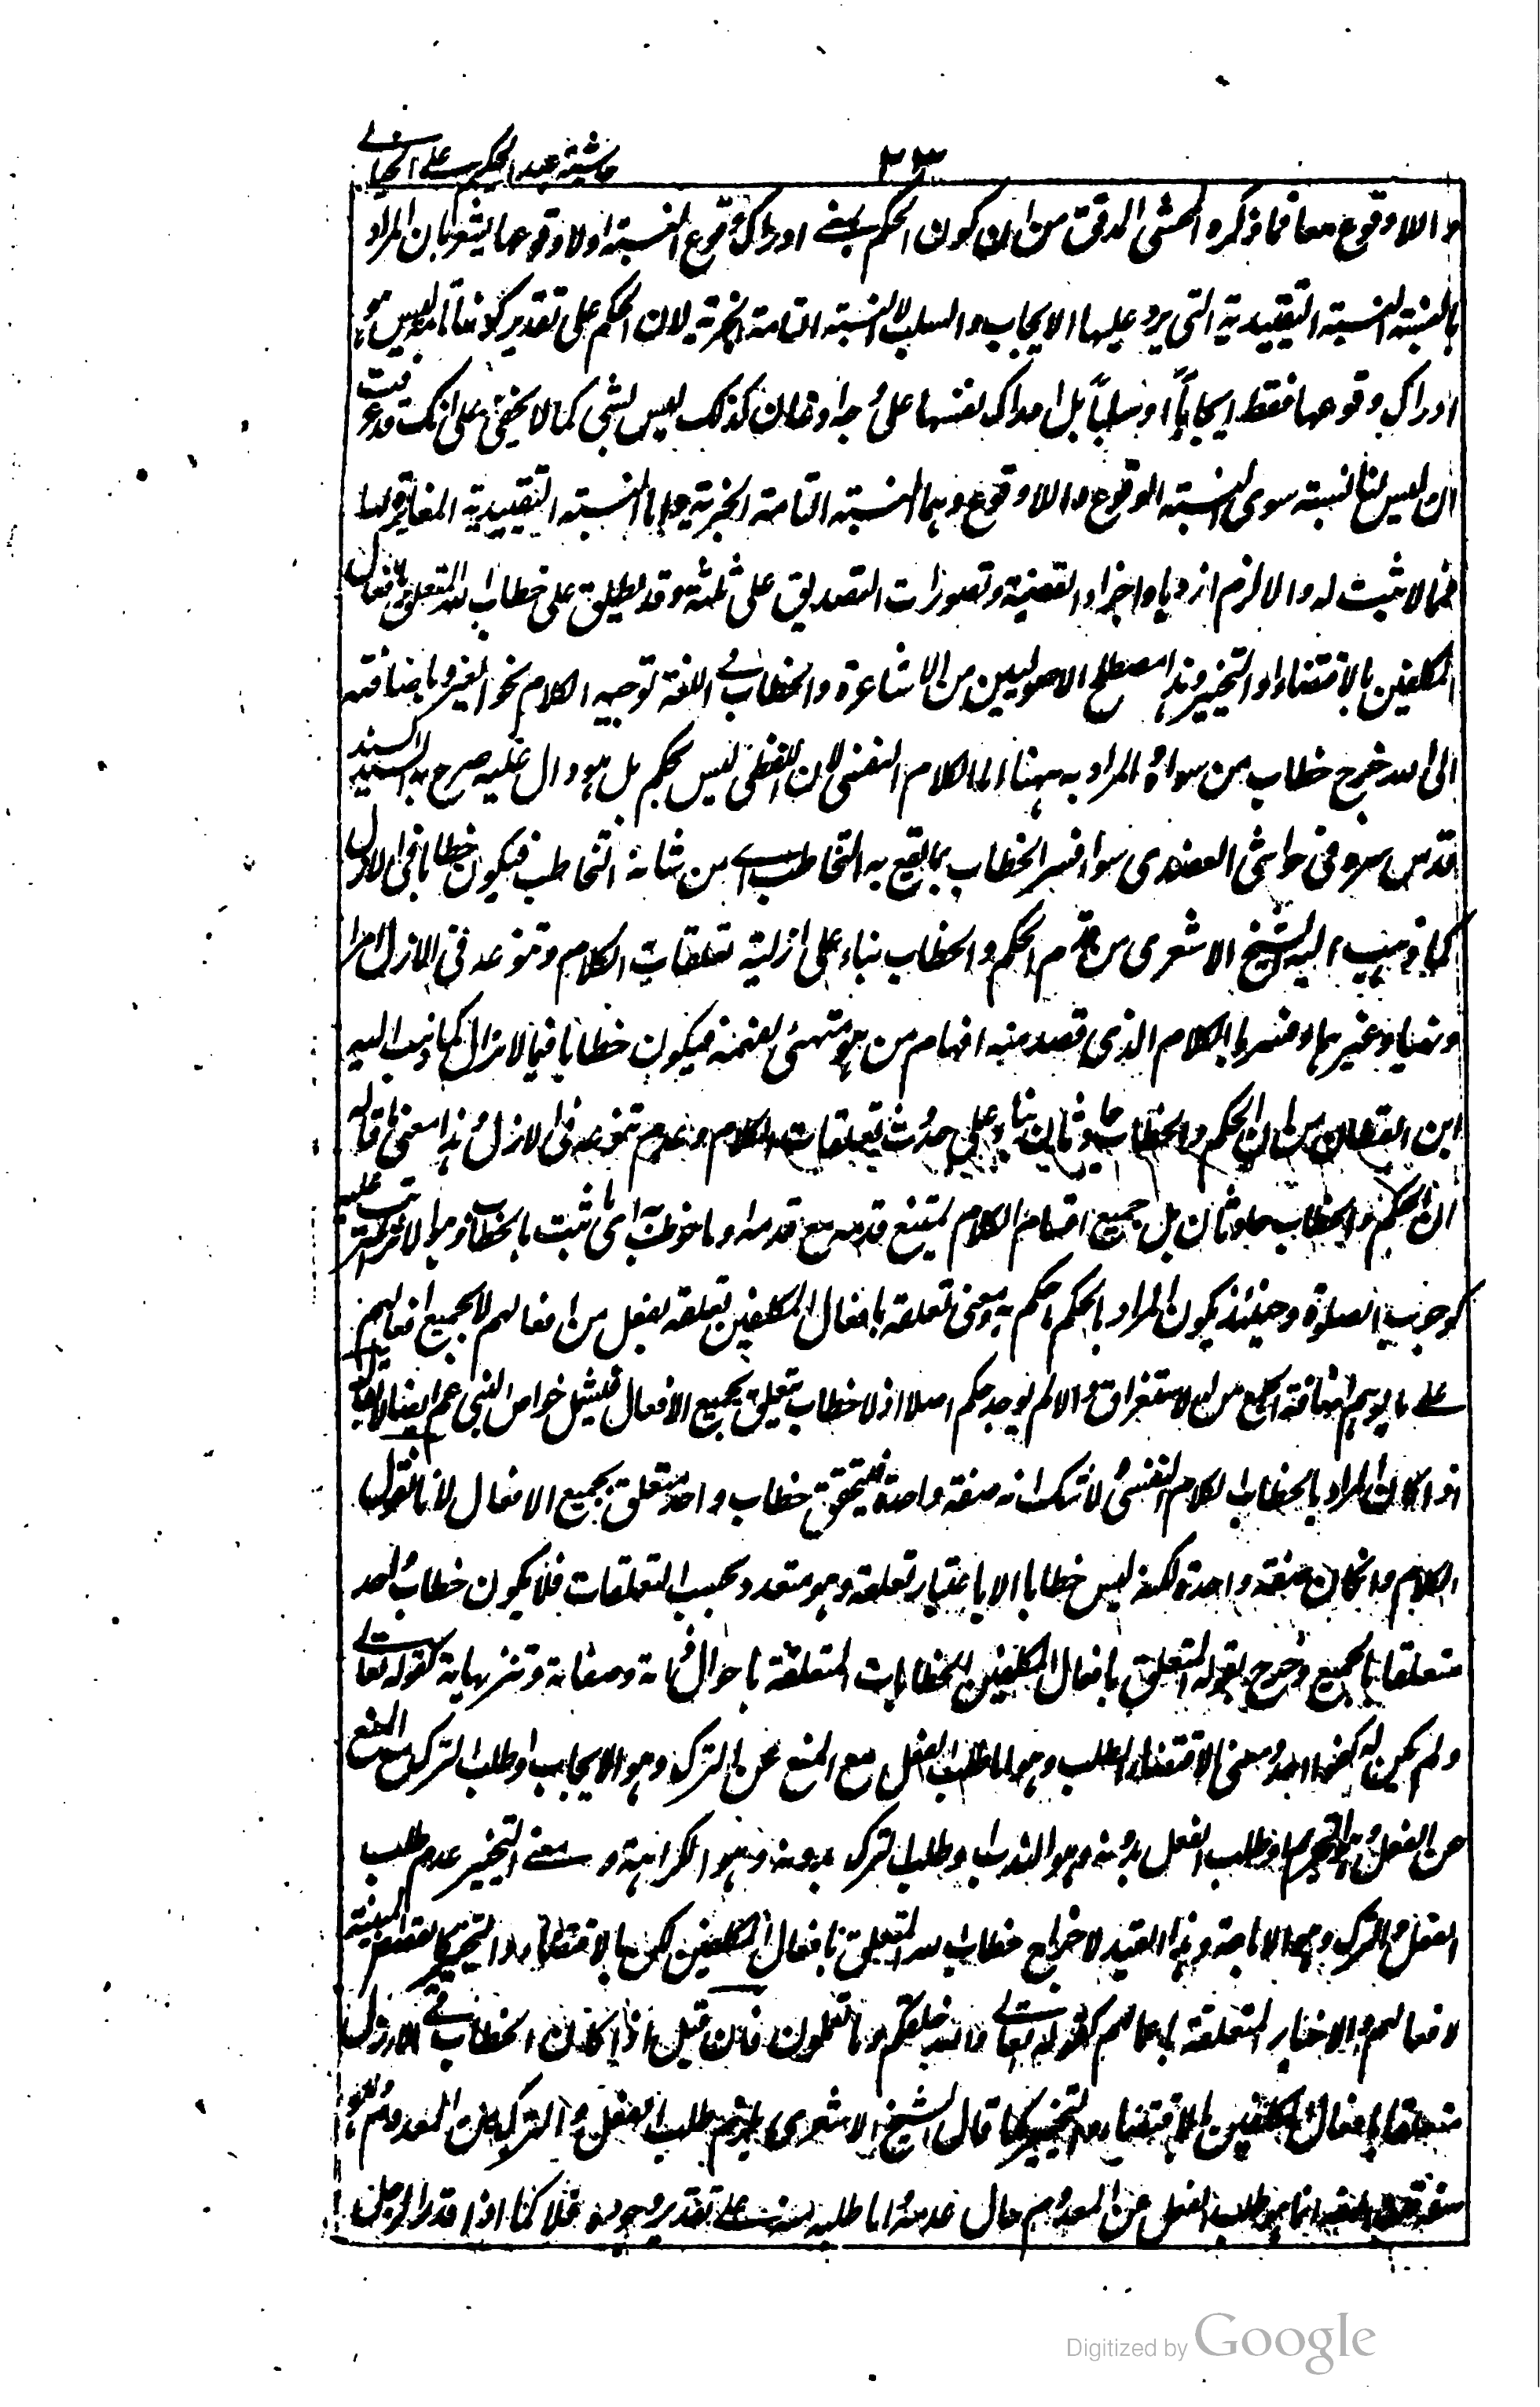 حاشية عبد الحكيم على الخيالے
٢٣
و اللاوقوع معا فما ذكره المحشى المدقق من ان كون الحكم بمعنے ادراك وقوع النسبة اولا وقوعها يشعر بان المراد
بالنسبة النسبة التقييدية التى يرد عليها الايجاب و السلب لا النسبة التامة الخبرية لان الحكم على تقدير كونها تامة ليس هو
ادراك وقوعها فقط ايجاباً او سلباً بل ادراك نفسها على وجه الاذعان كذلك ليس بشى كما لا يخفى على انك قد عرفت
ان ليس لنا نسبة سوى النسبة الوقوع و اللاوقوع و هما النسبة التامة الخبرية و اما النسبة التقييدية المغايرة لهما
فما لا ثبت له و الا لزم ازدياد اجزاء القضية و تصورات التصديق على ثلثة و قد يطلق على خطاب الله المتعلق بافعال
المكلفين بالاقتضاء او التخيير و هذا مصطلح الاصوليين من الاشاعرة و الخطاب فى اللغة توجيه الكلام نحو الغير و باضافته
الى الله خرج خطاب من سواه و المراد به ههنا اما الكلام النفسى لان اللفظى ليس بحكم بل هو دال عليه صرح به السيد السند
قدس سره فى حواشى العضدى سوا فسر الخطاب بما يقع به التخاطب اے من شانه التخاطب فيكون خطابا فى الازل
كما ذهب اليه الشيخ الاشعرى من قدم الحكم و الخطاب بناء على ازلية تعلقات الكلام و تنوعه فى الازل امرا
و نهيا و غيرهما او فسر بالكلام الذى قصد منه افهام من هو متهيئ لفهمه فيكون خطابا فيما لا يزال كما ذهب اليه
ابن القطان من ان الحكم و الخطاب حادثان بناء على حدوث تعلقات الكلام و عدم تنوعه فى الازل و هذا معنى ما قاله
ان الحكم و الخطاب حادثان بل جميع اقسام الكلام يمتنع قدمه مع قدمه و اما خوطب به اى ما ثبت بالخطاب و هو الاثر المترتب عليه
كوجوب الصلوة و حينئذ يكون المراد بالحكم ما حكم به و معنى تعلقه بافعال المكلفين تعلقه بفعل من افعالهم لا بجميع افعالهم
علے ما يوهم اضافة الجمع من الاستغراق و الا لم يوجد حكم اصلا اذ لا خطاب يتعلق بجميع الافعال فيشمل خواص النبى عم ايضا لا يقال
اذا كان المراد بالخطاب الكلام النفسى و لا شك انه صفة واحدة فيتحقق خطاب واحد متعلق بجميع الافعال لانا نقول
الكلام و ان كان صفة واحدة لكنه ليس خطابا الا باعتبار تعلقه و هو متعدد بحسب التعلقات فلا يكون خطاب واحد
متعلقا بالجميع و خرج بقوله المتعلق بافعال المكلفين الخطابات المتعلقة باحوال ذاته و صفاته و تنزيهاته كقوله تعالے
و لم يكن له كفوا احد و معنى الاقتضاء الطلب و هو اما طلب الفعل مع المنع عن الترك و هو الايجاب او طلب الترك مع المنع
عن الفعل و هو التحريم او طلب الفعل بدونه و هو الندب او طلب الترك بدونه و هو الكراهة و معنے التخيير عدم طلب
الفعل و الترك و هو الاباحة و هذا القيد لاخراج خطاب الله المتعلق بافعال المكلفين لكن لا بالاقتضاء و التخيير كالقصص المبينة
لافعالهم و الاخبار المتعلقة باعمالهم كقوله تعالے و الله خلقكم و ما تعملون فان قيل اذا كان الخطاب فے الازل
متعلقا بافعال المكلفين بالاقتضاء و التخيير كما قال الشيخ الاشعرى يلزم طلب الفعل و الترك من المعدوم و هو
سفه قلنا السفه انما هو طلب الفعل من المعدوم حال عدمه و اما طلبه منه علے تقدير وجوده فلا كما اذا قدر الرجل
Digitized by Google